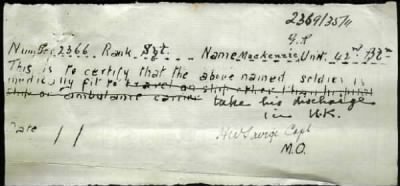 2369/35/4
Number 2366 Rank Sgt. Name Mackenzie Unit. 42nd Bn
This is to certify that the above named soldier is
medically fit to travel on ship other than hospital
ship or ambulance carrier take his discharge
in U.K.
Date / / Capt
M.O.